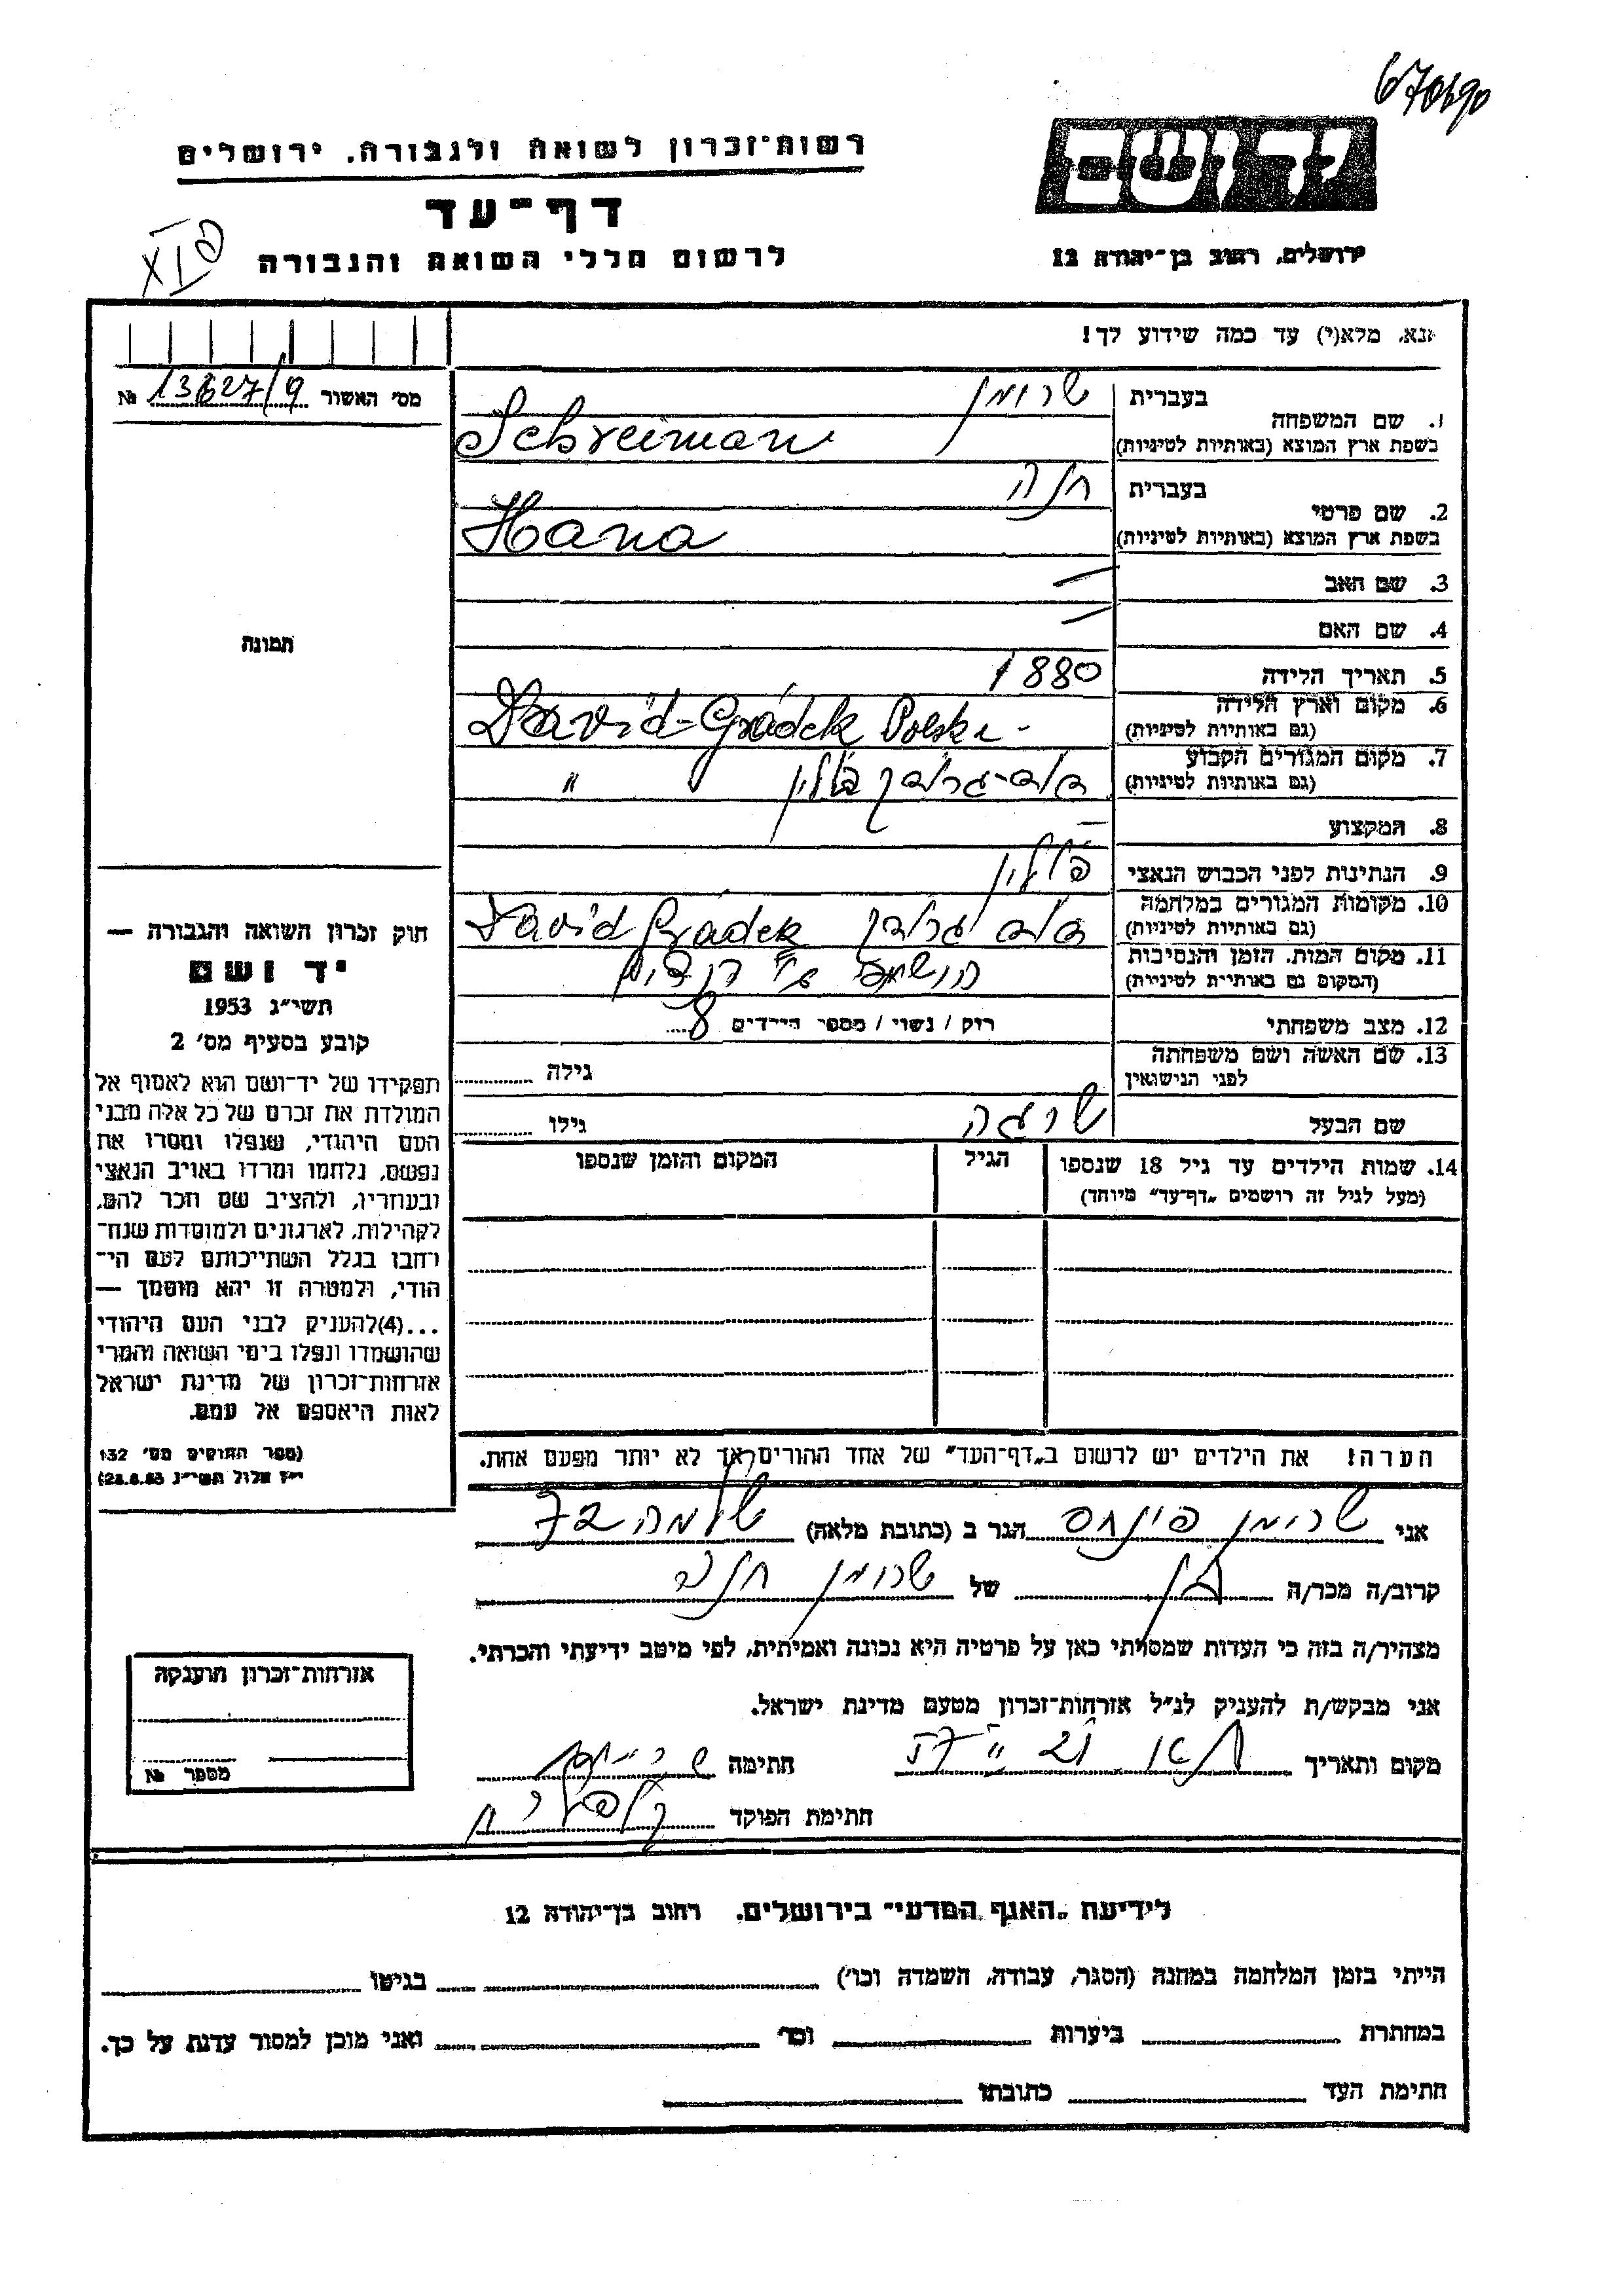 670690
רשות־זכרון לשואה ולגבורה, ירושלים
יד ושם
דף־עד
ירושלים, רחוב בן־יהודה 12
לרשום חללי השואה והגבורה
נא, מלא(י) עד כמה שידוע לך!
מס׳ האשור № 13627/9
בעברית שרימן
1. שם המשפחה
בשפת ארץ המוצא (באותיות לטיניות) Schreiman
בעברית חנה
2. שם פרטי
בשפת ארץ המוצא (באותיות לטיניות) Hana
3. שם האב —
4. שם האם —
תמונה
5. תאריך הלידה 1880
6. מקום וארץ הלידה David-Gródek Polska -
(גם באותיות לטיניות)
7. מקום המגורים הקבוע דוד-גרודק פולין "
(גם באותיות לטיניות)
8. המקצוע —
9. הנתינות לפני הכבוש הנאצי פולין
10. מקומות המגורים במלחמה דוד גרודק David Gródek
(גם באותיות לטיניות)
11. מקום המות, הזמן והנסיבות
(המקום גם באותיות לטיניות)
12. מצב משפחתי רווק / נשוי / מספר הילדים 8
13. שם האשה ושם משפחתה
לפני הנישואין גילה
שם הבעל שרגא גילו
14. שמות הילדים עד גיל 18 שנספו הגיל המקום והזמן שנספו
(מעל לגיל זה רושמים „דף־עד" מיוחד)
חוק זכרון השואה והגבורה —
יד ושם
תשי״ג 1953
קובע בסעיף מס׳ 2
תפקידו של יד־ושם הוא לאסוף אל
המולדת את זכרם של כל אלה מבני
העם היהודי, שנפלו ומסרו את
נפשם, נלחמו ומרדו באויב הנאצי
ובעוזריו, ולהציב שם וזכר להם,
לקהילות, לארגונים ולמוסדות שנח־
רבו בגלל השתייכותם לעם הי־
הודי, ולמטרה זו יהא מוסמך —
...(4)להעניק לבני העם היהודי
שהושמדו ונפלו בימי השואה והמרי
אזרחות־זכרון של מדינת ישראל
לאות היאספם אל עמם.
(ספר החוקים מס׳ 132
י״ז אלול תשי״ג 28.8.53)
הערה! את הילדים יש לרשום ב„דף־העד" של אחד ההורים אך לא יותר מפעם אחת.
אני שרימן פינחס הגר ב (כתובת מלאה) שלמה 72
קרוב/ה מכר/ה בן של שרימן חנה
מצהיר/ה בזה כי העדות שמסרתי כאן על פרטיה היא נכונה ואמיתית, לפי מיטב ידיעתי והכרתי.
אני מבקש/ת להעניק לנ״ל אזרחות־זכרון מטעם מדינת ישראל.
מקום ותאריך חתימה
חתימת הפוקד
אזרחות־זכרון הוענקה
מספר №
לידיעת „האגף המדעי" בירושלים, רחוב בן־יהודה 12
הייתי בזמן המלחמה במחנה (הסגר, עבודה, השמדה וכו׳) בגיטו
במחתרת ביערות וכו׳ ואני מוכן למסור עדות על כך.
חתימת העד כתובתו